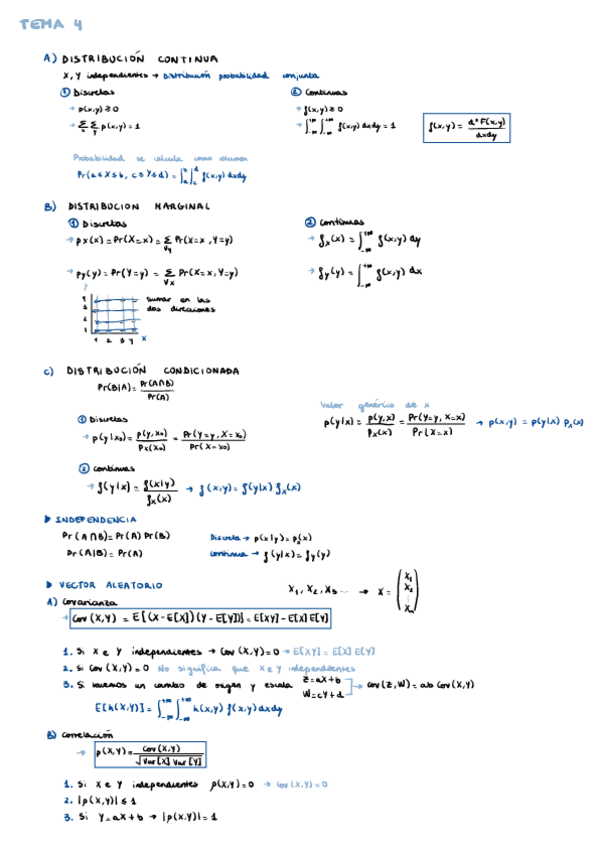 TEMA 4
A) DISTRIBUCIÓN CONTINUA
X, Y independientes → Distribución probabilidad conjunta
① Discretas
→ p(x,y) ≥ 0
→ Σx Σy p(x,y) = 1
② Continuas
→ f(x,y) ≥ 0
→ ∫_{-∞}^{+∞} ∫_{-∞}^{+∞} f(x,y) dxdy = 1
f(x,y) = d² F(x,y) / dxdy
Probabilidad se calcula como volumen
Pr(a ≤ X ≤ b, c ≤ Y ≤ d) = ∫_a^b ∫_c^d f(x,y) dxdy
B) DISTRIBUCION MARGINAL
① Discretas
→ px(x) = Pr(X=x) = Σ∀y Pr(X=x, Y=y)
→ py(y) = Pr(Y=y) = Σ∀x Pr(X=x, Y=y)
② continuas
→ fx(x) = ∫_{-∞}^{+∞} f(x,y) dy
→ fy(y) = ∫_{-∞}^{+∞} f(x,y) dx
sumar en las
dos direcciones
1 2 3 4 x
C) DISTRIBUCIÓN CONDICIONADA
Pr(B|A) = Pr(A∩B) / Pr(A)
① Discretas
→ p(y|x₀) = p(y,x₀) / px(x₀) = Pr(Y=y, X=x₀) / Pr(X=x₀)
Valor genérico de x
p(y|x) = p(y,x) / px(x) = Pr(Y=y, X=x) / Pr(X=x) → p(x,y) = p(y|x) px(x)
② continuas
→ f(y|x) = f(x|y) / fx(x) → f(x,y) = f(y|x) fx(x)
INDEPENDENCIA
Pr(A∩B) = Pr(A) Pr(B)
Pr(A|B) = Pr(A)
Discreta → p(x|y) = px(x)
continua → f(y|x) = fy(y)
VECTOR ALEATORIO
X₁, X₂, X₃ ... → X = (X₁ X₂ ⋮ Xn)
A) Covarianza
→ Cov(X,Y) = E[(X-E[X])(Y-E[Y])] = E[XY] - E[X]E[Y]
1. Si X e Y independientes → Cov(X,Y) = 0 → E[XY] = E[X]E[Y]
2. Si Cov(X,Y) = 0 No significa que X e Y independientes
3. Si hacemos un cambio de origen y escala Z = aX + b
W = cY + d → cov(Z,W) = ab Cov(X,Y)
E[h(X,Y)] = ∫_{-∞}^{+∞} ∫_{-∞}^{+∞} h(x,y) f(x,y) dxdy
B) Correlación
→ ρ(X,Y) = Cov(X,Y) / √Var[X] Var[Y]
1. Si X e Y independientes ρ(X,Y) = 0 → Cov(X,Y) = 0
2. |ρ(X,Y)| ≤ 1
3. Si Y = aX + b → |ρ(X,Y)| = 1